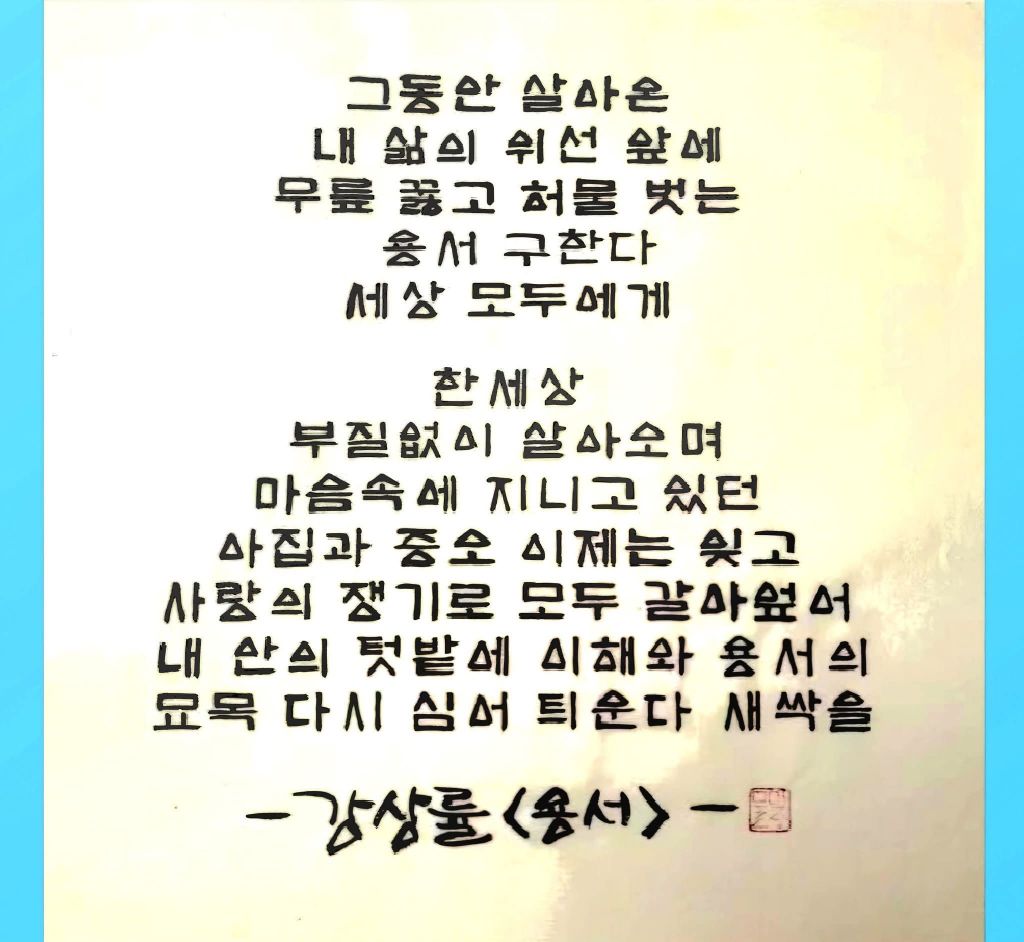 그동안 살아온
내 삶의 위선 앞에
무릎 꿇고 허물 벗는
용서 구한다
세상 모두에게
한세상
부질없이 살아오며
마음속에 지니고 있던
아집과 증오 이제는 잊고
사랑의 쟁기로 모두 갈아엎어
내 안의 텃밭에 이해와 용서의
묘목 다시 심어 틔운다 새싹을
- 강상률 <용서> -